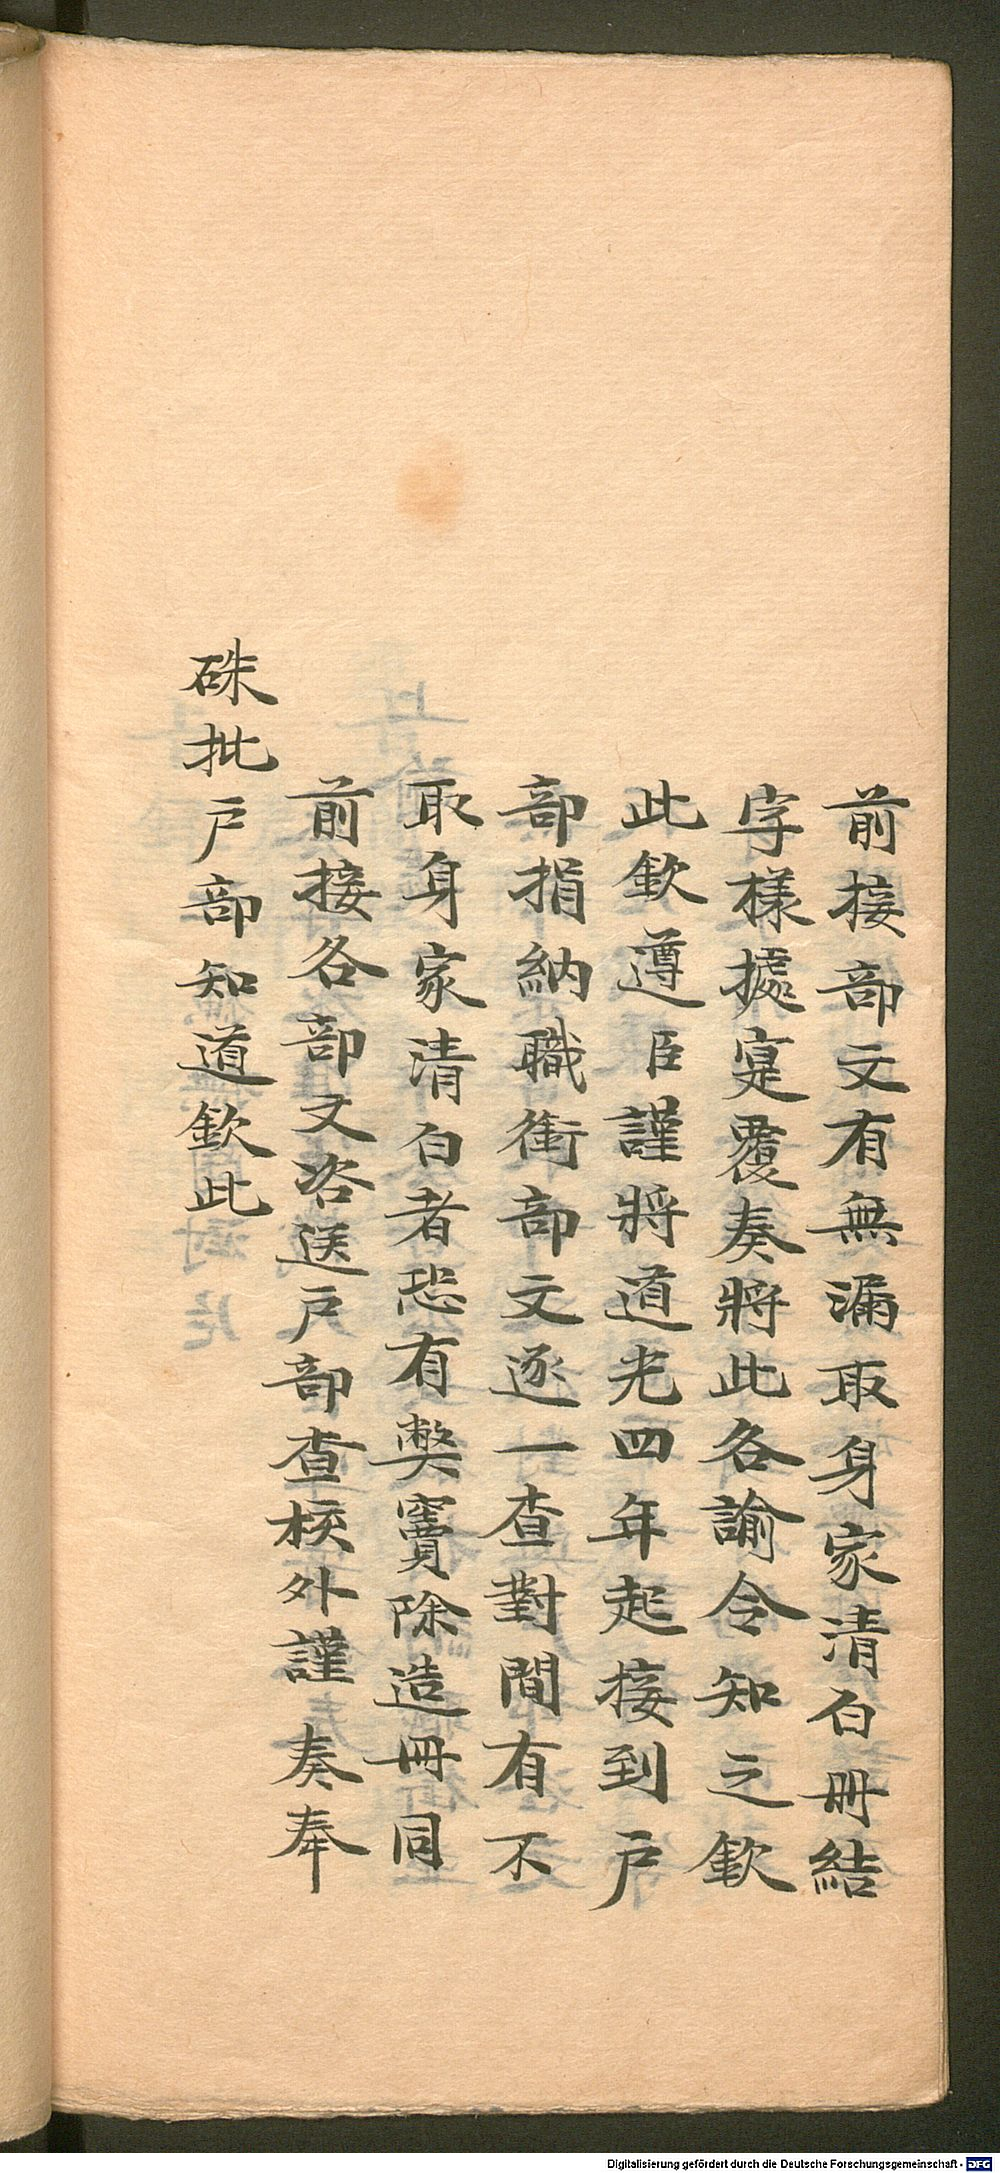 前接部文有無漏取身家清白冊結
字様據寔覆奏將此各諭令知之欽
此欽遵臣謹將道光四年起接到戸
部捐納職銜部文逐一查對間有不
取身家清白者恐有弊竇除造冊同
前接各部文咨送戸部查核外謹奏奉
硃批戸部知道欽此
Digitalisierung gefördert durch die Deutsche Forschungsgemeinschaft - DFG